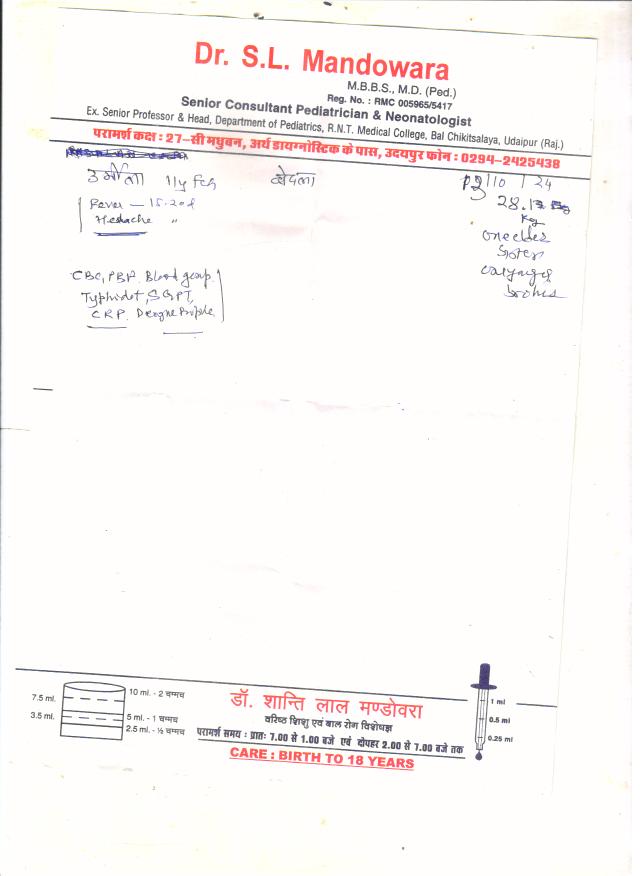 Dr. S.L. Mandowara
M.B.B.S., M.D. (Ped.)
Reg. No. : RMC 005965/5417
Senior Consultant Pediatrician & Neonatologist
Ex. Senior Professor & Head, Department of Pediatrics, R.N.T. Medical College, Bal Chikitsalaya, Udaipur (Raj.)
परामर्श कक्ष : 27-सी मधुबन, अर्थ डायग्नोस्टिक के पास, उदयपुर फोन : 0294-2425438
11y fch /10/24
Fever — 15-20d 28.1
Hedache " Kg
one elder
sister
CBC, PBF, Blood group
Typhidot, SGPT,
CRP. Dengue Profile
7.5 ml.
3.5 ml.
10 ml. - 2 चम्मच
5 ml. - 1 चम्मच
2.5 ml. - ½ चम्मच
डॉ. शान्ति लाल मण्डोवरा
वरिष्ठ शिशु एवं बाल रोग विशेषज्ञ
परामर्श समय : प्रातः 7.00 से 1.00 बजे एवं दोपहर 2.00 से 7.00 बजे तक
CARE : BIRTH TO 18 YEARS
1 ml
0.5 ml
0.25 ml